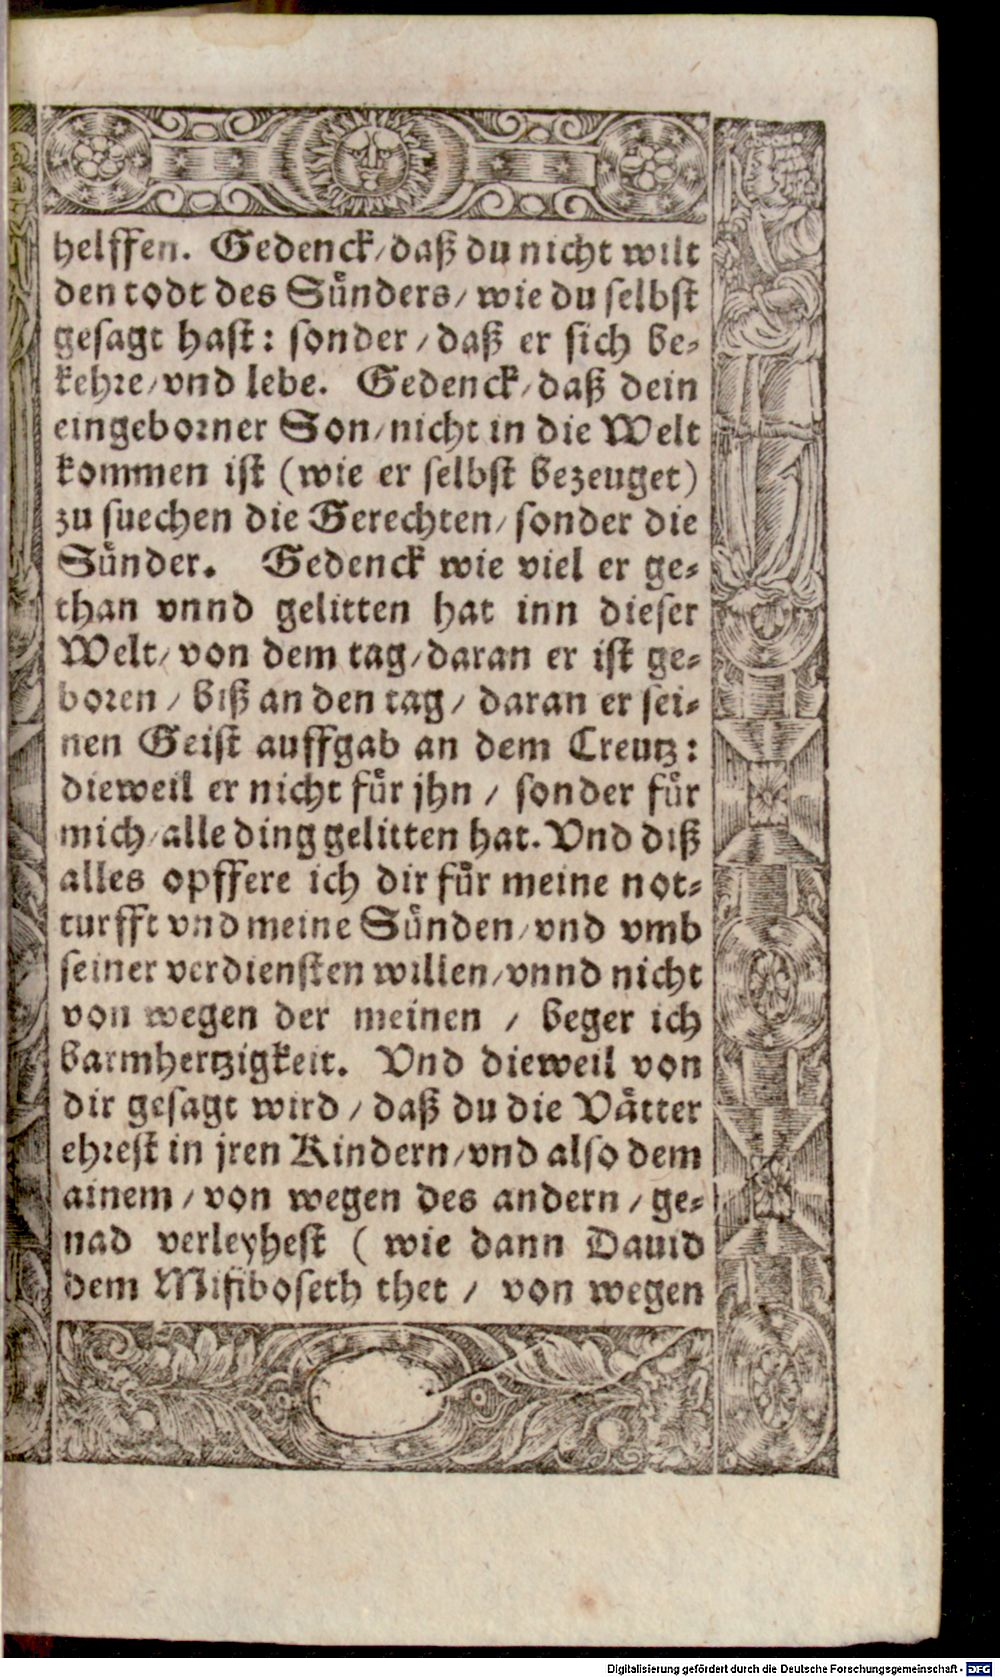 helffen. Gedenck/ daß du nicht wilt
den todt des Sünders/ wie du selbst
gesagt hast: sonder / daß er sich be-
kehre/ vnd lebe. Gedenck/ daß dein
eingeborner Son/ nicht in die Welt
kommen ist (wie er selbst bezeuget)
zu suechen die Gerechten/ sonder die
Sünder. Gedenck wie viel er ge-
than vnnd gelitten hat inn dieser
Welt/ von dem tag/ daran er ist ge-
boren / biß an den tag / daran er sei-
nen Geist auffgab an dem Creutz:
dieweil er nicht für jhn / sonder für
mich/ alle ding gelitten hat. Vnd diß
alles opffere ich dir für meine not-
turfft vnd meine Sünden/ vnd vmb
seiner verdiensten willen/ vnnd nicht
von wegen der meinen / beger ich
barmhertzigkeit. Vnd dieweil von
dir gesagt wird / daß du die Vätter
ehrest in jren Kindern/ vnd also dem
ainem / von wegen des andern / ge-
nad verleyhest ( wie dann Dauid
dem Mifiboseth thet / von wegen
Digitalisierung gefördert durch die Deutsche Forschungsgemeinschaft - DFG